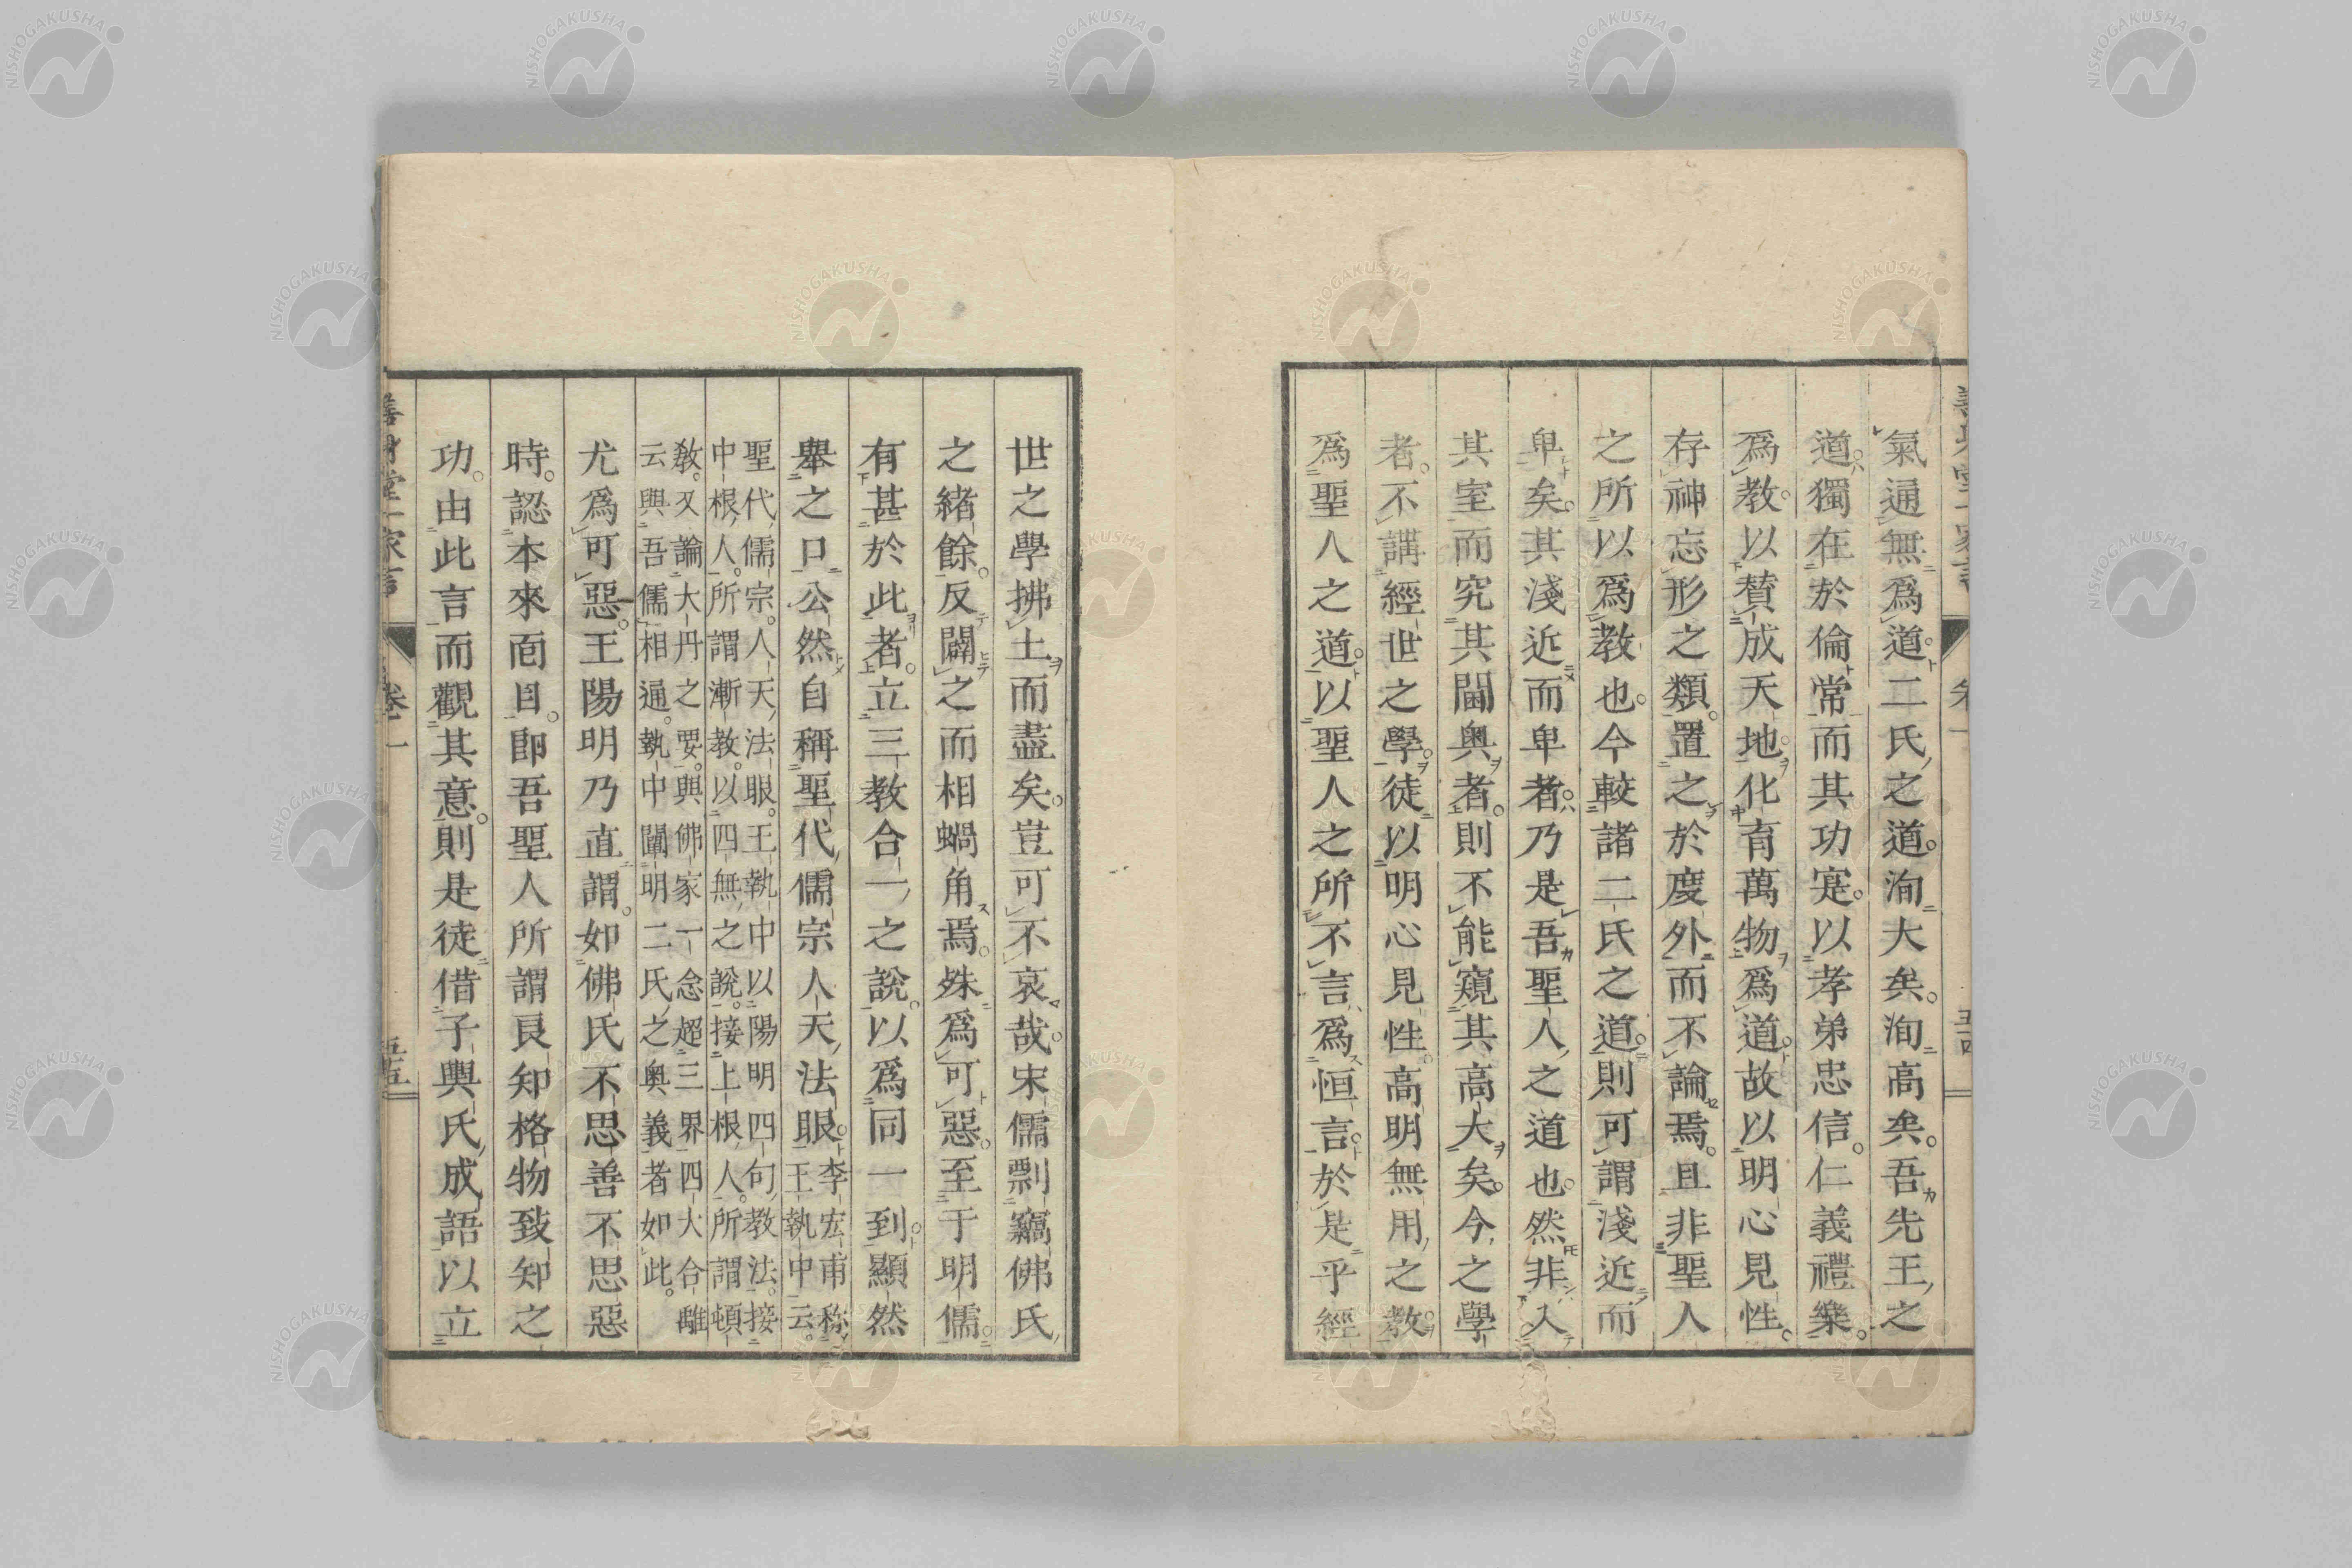 氣通無爲道二氏之道洵大矣洵高矣吾先王之
道獨在於倫常而其功寔以孝弟忠信仁義禮樂
爲教以賛成天地化育萬物爲道故以明心見性
存神忘形之類置之於度外而不論焉且非聖人
之所以爲教也今較諸二氏之道則可謂淺近而
卑矣其淺近而卑者乃是吾聖人之道也然非入
其室而究其閫奥者則不能窺其高大矣今之學
者不講經世之學徒以明心見性高明無用之教
爲聖人之道以聖人之所不言爲恒言於是乎經
世之學拂土而盡矣豈可不哀哉宋儒剽竊佛氏
之緒餘反闢之而相蝸角焉殊爲可惡至于明儒
有甚於此者立三教合一之說以爲同一到顯然
舉之口公然自稱聖代儒宗人天法眼李宏甫称王執中云
聖代儒宗人天法眼王執中以陽明四句教法接
中根人所謂漸教以四無之說接上根人所謂頓
教又論大丹之要與佛家一念超三界四大合離
云與吾儒相通執中闡明二氏之奥義者如此
尤爲可惡王陽明乃直謂如佛氏不思善不思惡
時認本來面目即吾聖人所謂良知格物致知之
功由此言而觀其意則是徒借子輿氏成語以立
卷一
五五
NISHOGAKUSHA